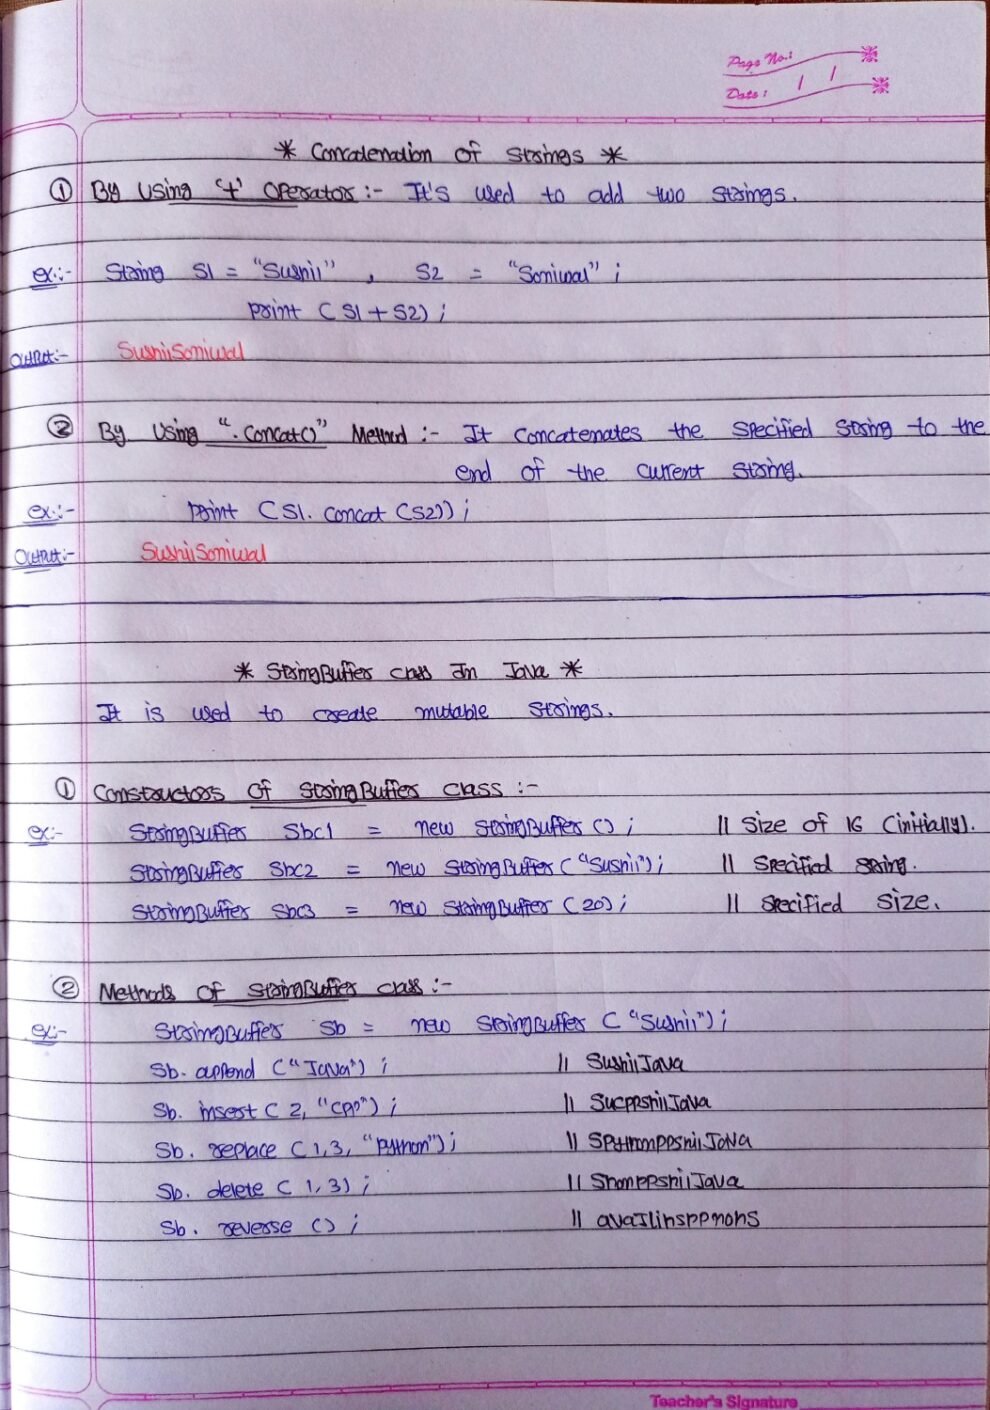 Page No.:
Date: / /
* Concatenation of Strings *
① By Using '+' Operator :- It's used to add two strings.
ex:- String S1 = "Sushil", S2 = "Soniwal";
print (S1 + S2);
Output:- SushilSoniwal
② By Using ".Concat()" Method :- It Concatenates the specified string to the
end of the current string.
ex:- print (S1. Concat (S2));
Output:- SushilSoniwal
* StringBuffer class In Java *
It is used to create mutable strings.
① Constructors Of StringBuffer class :-
ex:- StringBuffer Sbc1 = new StringBuffer (); // Size of 16 (initially).
StringBuffer Sbc2 = new StringBuffer ("Sushil"); // Specified string.
StringBuffer Sbc3 = new StringBuffer (20); // Specified Size.
② Methods Of StringBuffer class :-
ex:- StringBuffer Sb = new StringBuffer ("Sushil");
Sb. append ("Java"); // SushilJava
Sb. insert (2, "cpp"); // SucppshilJava
Sb. replace (1,3, "Python"); // SPythonppshilJava
Sb. delete (1,3); // ShonppshilJava
Sb. reverse (); // avaJlihsppnohS
Teacher's Signature